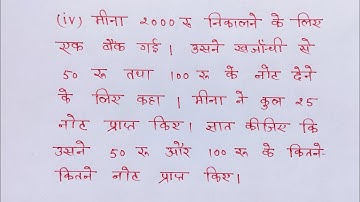 (iv) मीना 2000 रु निकालने के लिए
एक बैंक गई। उसने खजाँची से
50 रु तथा 100 रु के नोट देने
के लिए कहा। मीना ने कुल 25
नोट प्राप्त किए। ज्ञात कीजिए कि
उसने 50 रु और 100 रु के कितने-
कितने नोट प्राप्त किए।